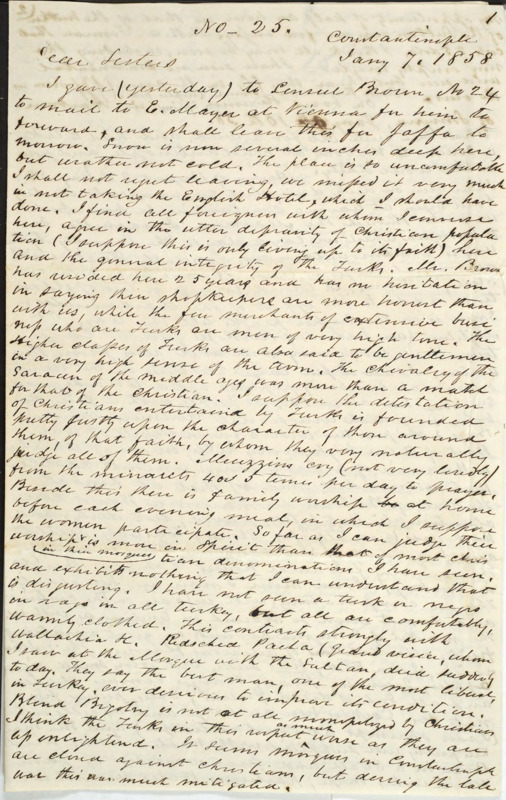 1
No- 25.
Constantinople
Jany 7. 1858
Dear Sisters
I gave (yesterday) to Consul Brown No 24
to mail to E. Mayer at Vienna for him to
forward, and shall leave this for Jaffa to
morrow. Snow is now several inches deep here,
but weather not cold. The place is so uncomfortable
I shall not regret leaving, we missed it very much
in not taking the English Hotel, which I should have
done. I find all foreigners with whom I converse
here, agree in the utter depravity of Christian popula
tion (I suppose this is only living up to its faith) here
and the general integrity of the Turks. Mr. Brown
has resided here 25 years and has no hesitation
in saying their shopkeepers are more honest than
with us, while the few merchants of extensive busi
ness who are Turks are men of very high tone. The
higher classes of Turks are also said to be gentlemen
in a very high sense of the term. The chivalry of the
Saracen of the middle ages was more than a match
for that of the Christian. I suppose the detestation
of Christians entertained by Turks is founded
pretty justly upon the character of those around
them, of that faith, by whom they very naturally
judge all of them. Muezzins cry (not very loudly)
from the minarets 4 or 5 times per day to prayer.
Beside this there is family worship at home
before each evening meal, in which I suppose
the women participate. So far as I can judge their
worship is more in Spirit than that of most chris
in their mosques tian denominations I have seen.
and exhibits nothing that I can understand that
is disgusting. I have not seen a turk or negro
in rags in all turkey, but all are comfortably,
warmly clothed. This contrasts strongly with
Wallachia &c. Redsched Pacha (Grand visier, whom
I saw at the Mosque with the Sultan, died suddenly
to day. They say the best man, one of the most liberal,
in Turkey, ever desirous to improve its condition.
Blind Bigotry is not at all monopolized by Christians
I think the Turks in this respect as much worse as they are
up enlightend. It seems mosques in Constantinople
are closed against christians, but during the late
war this was much mitigated.